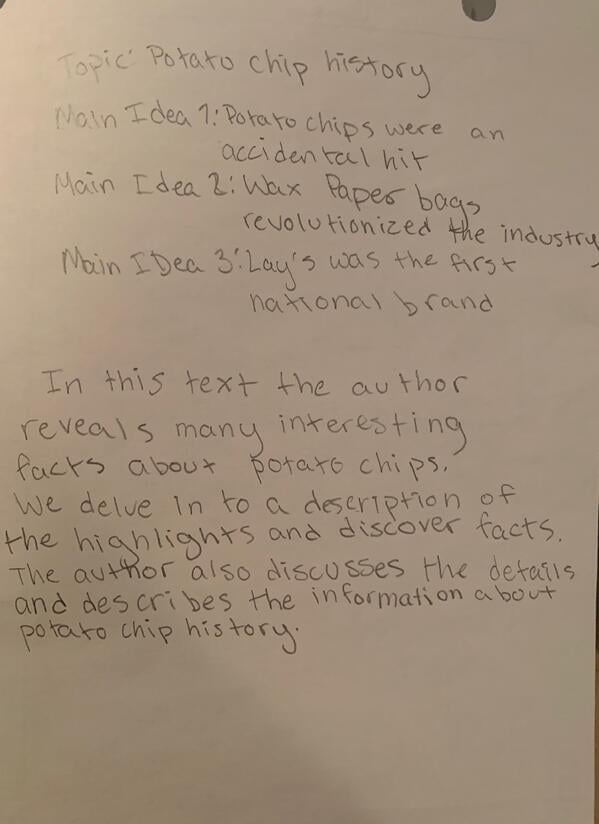 Topic: Potato chip history
Main Idea 1: Potato chips were an
accidental hit
Main Idea 2: Wax Paper bags
revolutionized the industry
Main IDea 3: Lay's was the first
national brand
In this text the author
reveals many interesting
facts about potato chips.
We delve in to a description of
the highlights and discover facts.
The author also discusses the details
and describes the information about
potato chip history.